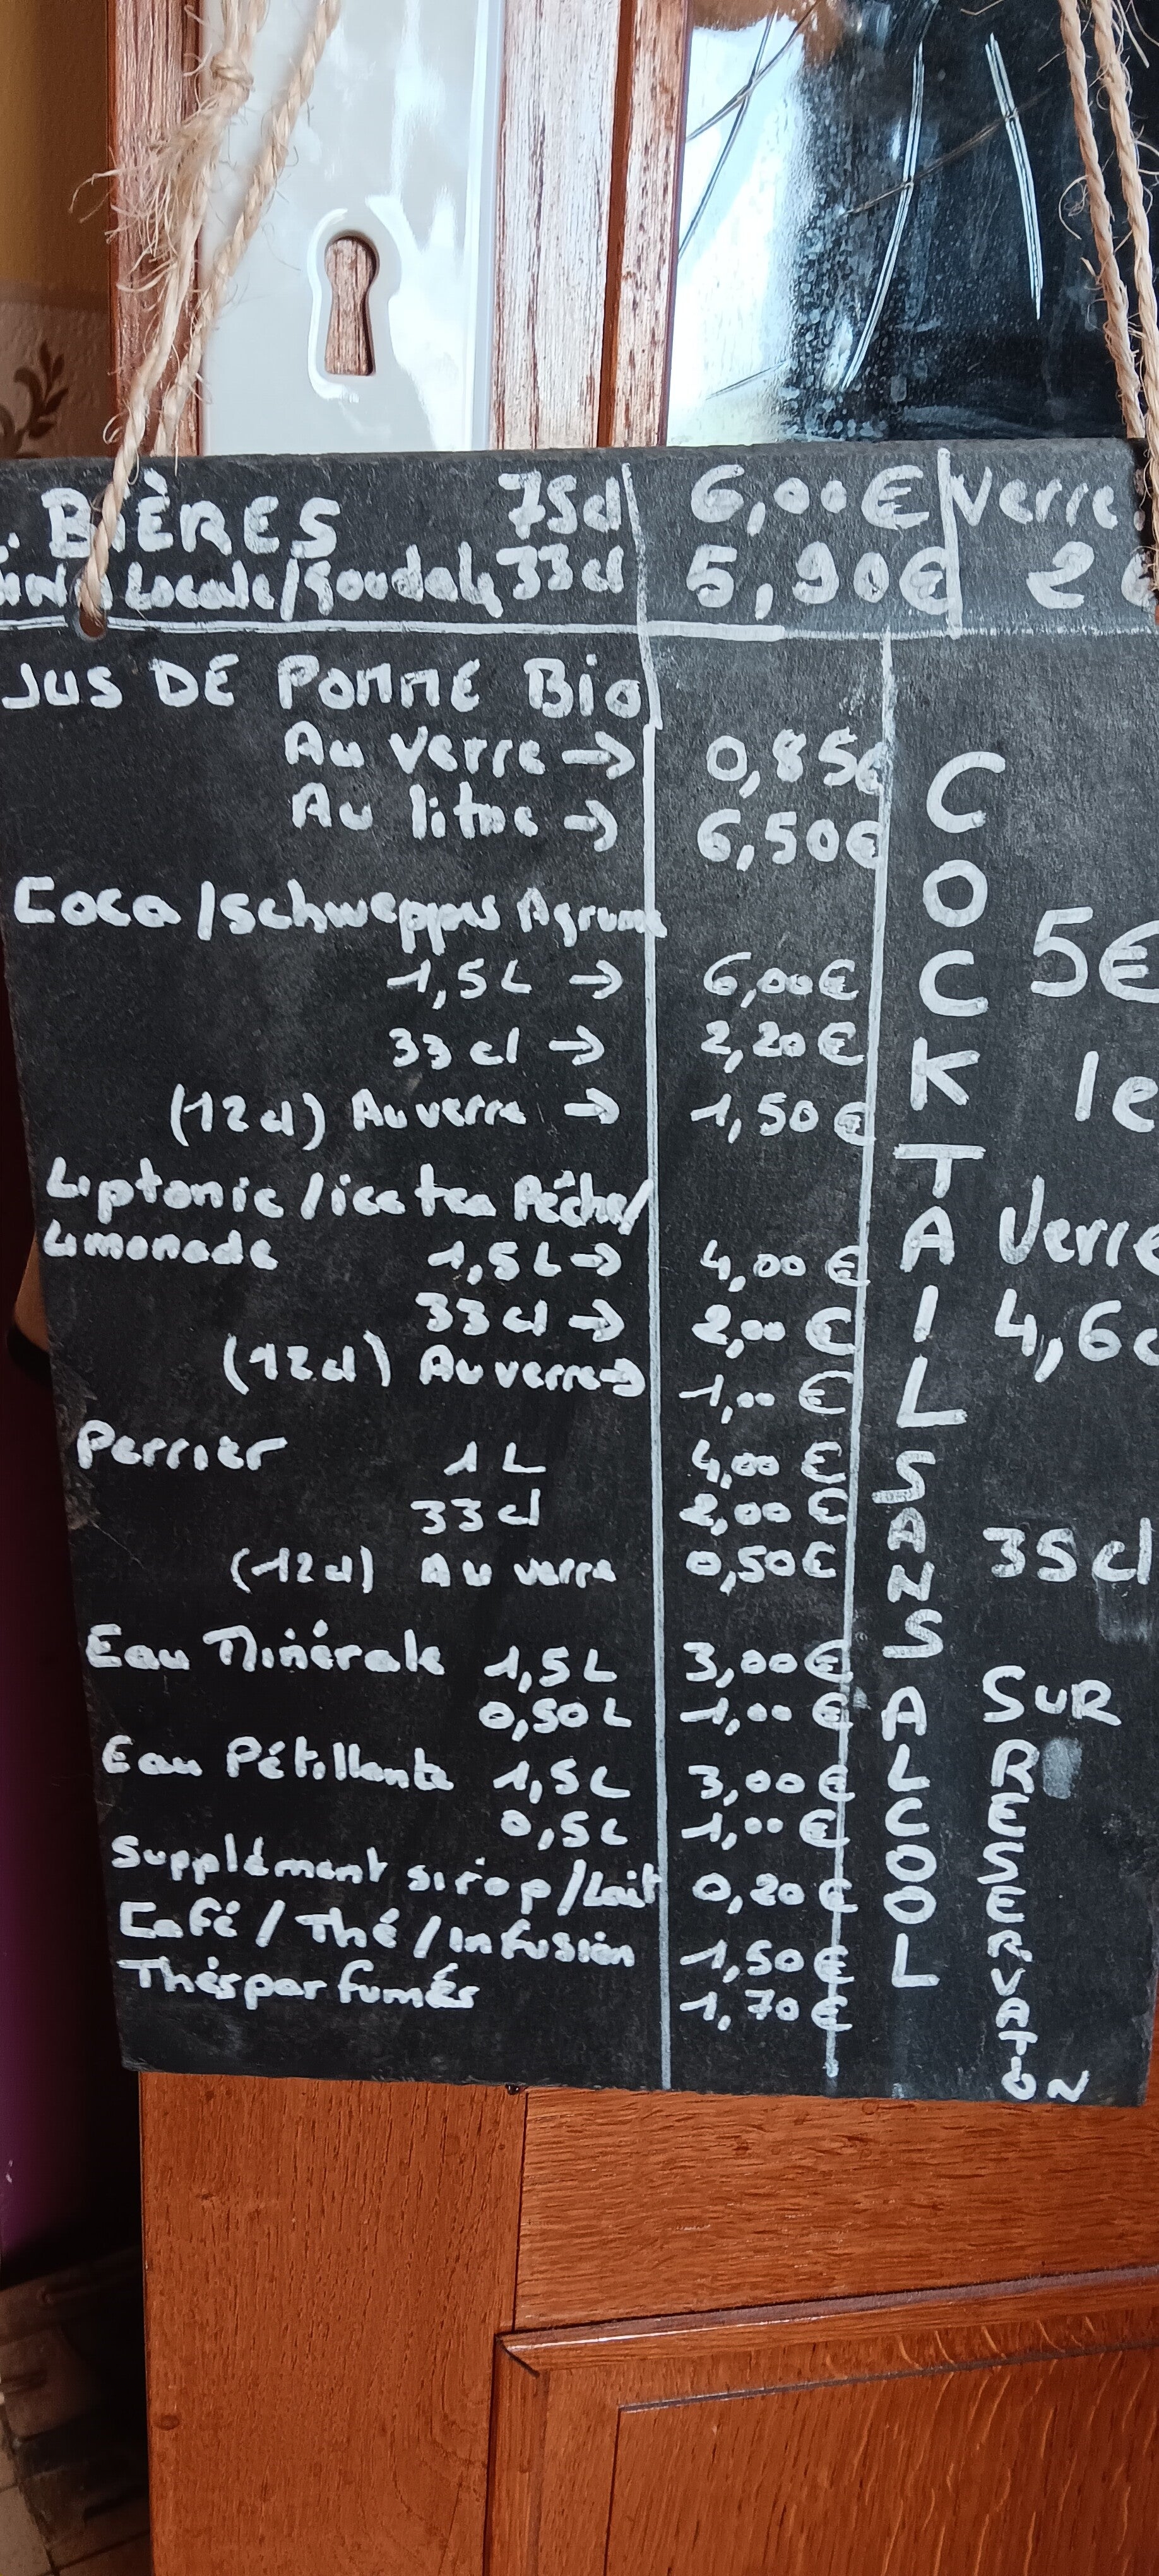 . BIÈRES 75cl 6,00€ Verre
Locale/Goudale 33cl 5,90€ 2€
JUS DE POMME Bio
Au verre → 0,85€
Au litre → 6,50€
Coca/Schweppes Agrum
1,5L → 6,00€
33cl → 2,20€
(12cl) Au verre → 1,50€
Liptonic/ice tea Pêche/
Limonade 1,5L → 4,00€
33cl → 2,00€
(12cl) Au verre → 1,00€
Perrier 1L 4,00€
33cl 2,00€
(12cl) Au verre 0,50€
Eau Minérale 1,5L 3,00€
0,50L 1,00€
Eau Pétillante 1,5L 3,00€
0,5L 1,00€
Supplément sirop/Lait 0,20€
Café/Thé/infusion 1,50€
Thés parfumés 1,70€
COCKTAIL SANS ALCOOL
5€
le
Verre
4,6
35cl
SUR
RESERVATION